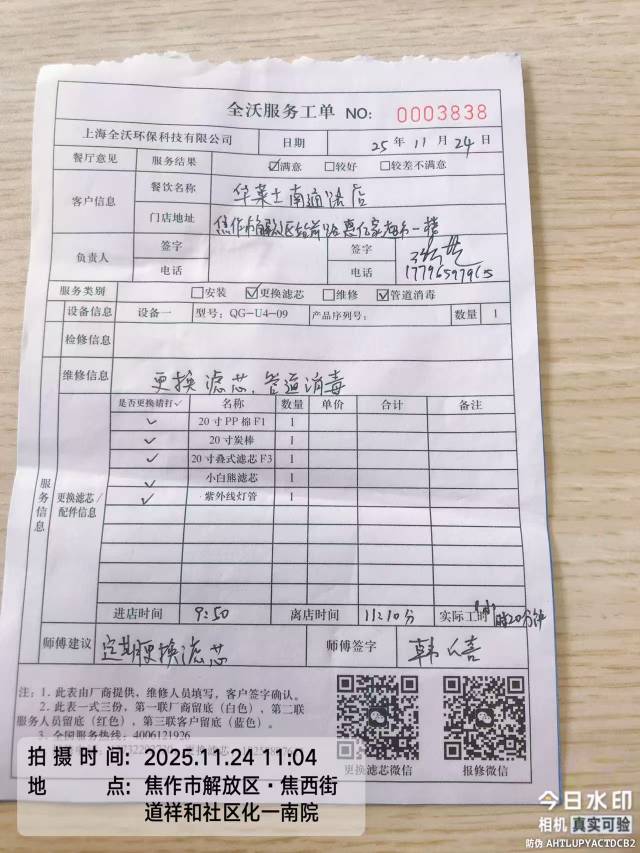 全沃服务工单 NO: 0003838
上海全沃环保科技有限公司 日期 25 年 11 月 24 日
餐厅意见 服务结果 ☑满意 □较好 □较差不满意
客户信息 餐饮名称 华莱士南通路店
门店地址 焦作市解放区 路 一楼
负责人 签字 签字
电话 电话 17796597965
服务类别 □安装 ☑更换滤芯 □维修 ☑管道消毒
设备信息 设备一 型号：QG-U4-09 产品序列号： 数量 1
检修信息
维修信息 更换滤芯，管道消毒
服务信息 更换滤芯/配件信息
是否更换请打✓ 名称 数量 单价 合计 备注
✓ 20寸PP棉F1 1
✓ 20寸炭棒 1
✓ 20寸叠式滤芯F3 1
✓ 小白熊滤芯 1
✓ 紫外线灯管 1
进店时间 9:50 离店时间 11:10分 实际工时 1小时20分钟
师傅建议 定期更换滤芯 师傅签字 韩
注：1．此表由厂商提供、维修人员填写，客户签字确认。
2．此表一式三份，第一联厂商留底（白色）、第二联
服务人员留底（红色）、第三联客户留底（蓝色）。
3．全国服务热线：4006121926
更换滤芯微信 报修微信
拍摄时间：2025.11.24 11:04
地 点：焦作市解放区·焦西街
道祥和社区化一南院
今日水印
相机 真实可验
防伪 AHTLUPYACTDCB2